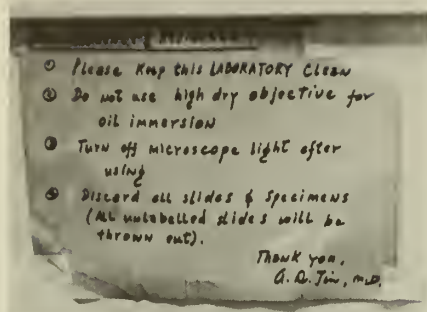 ① Please Keep this LABORATORY Clean
② Do not use high dry objective for
oil immersion
③ Turn off microscope light after
using
④ Discard all slides & specimens
(All unlabelled slides will be
thrown out).
Thank you,
M.D.